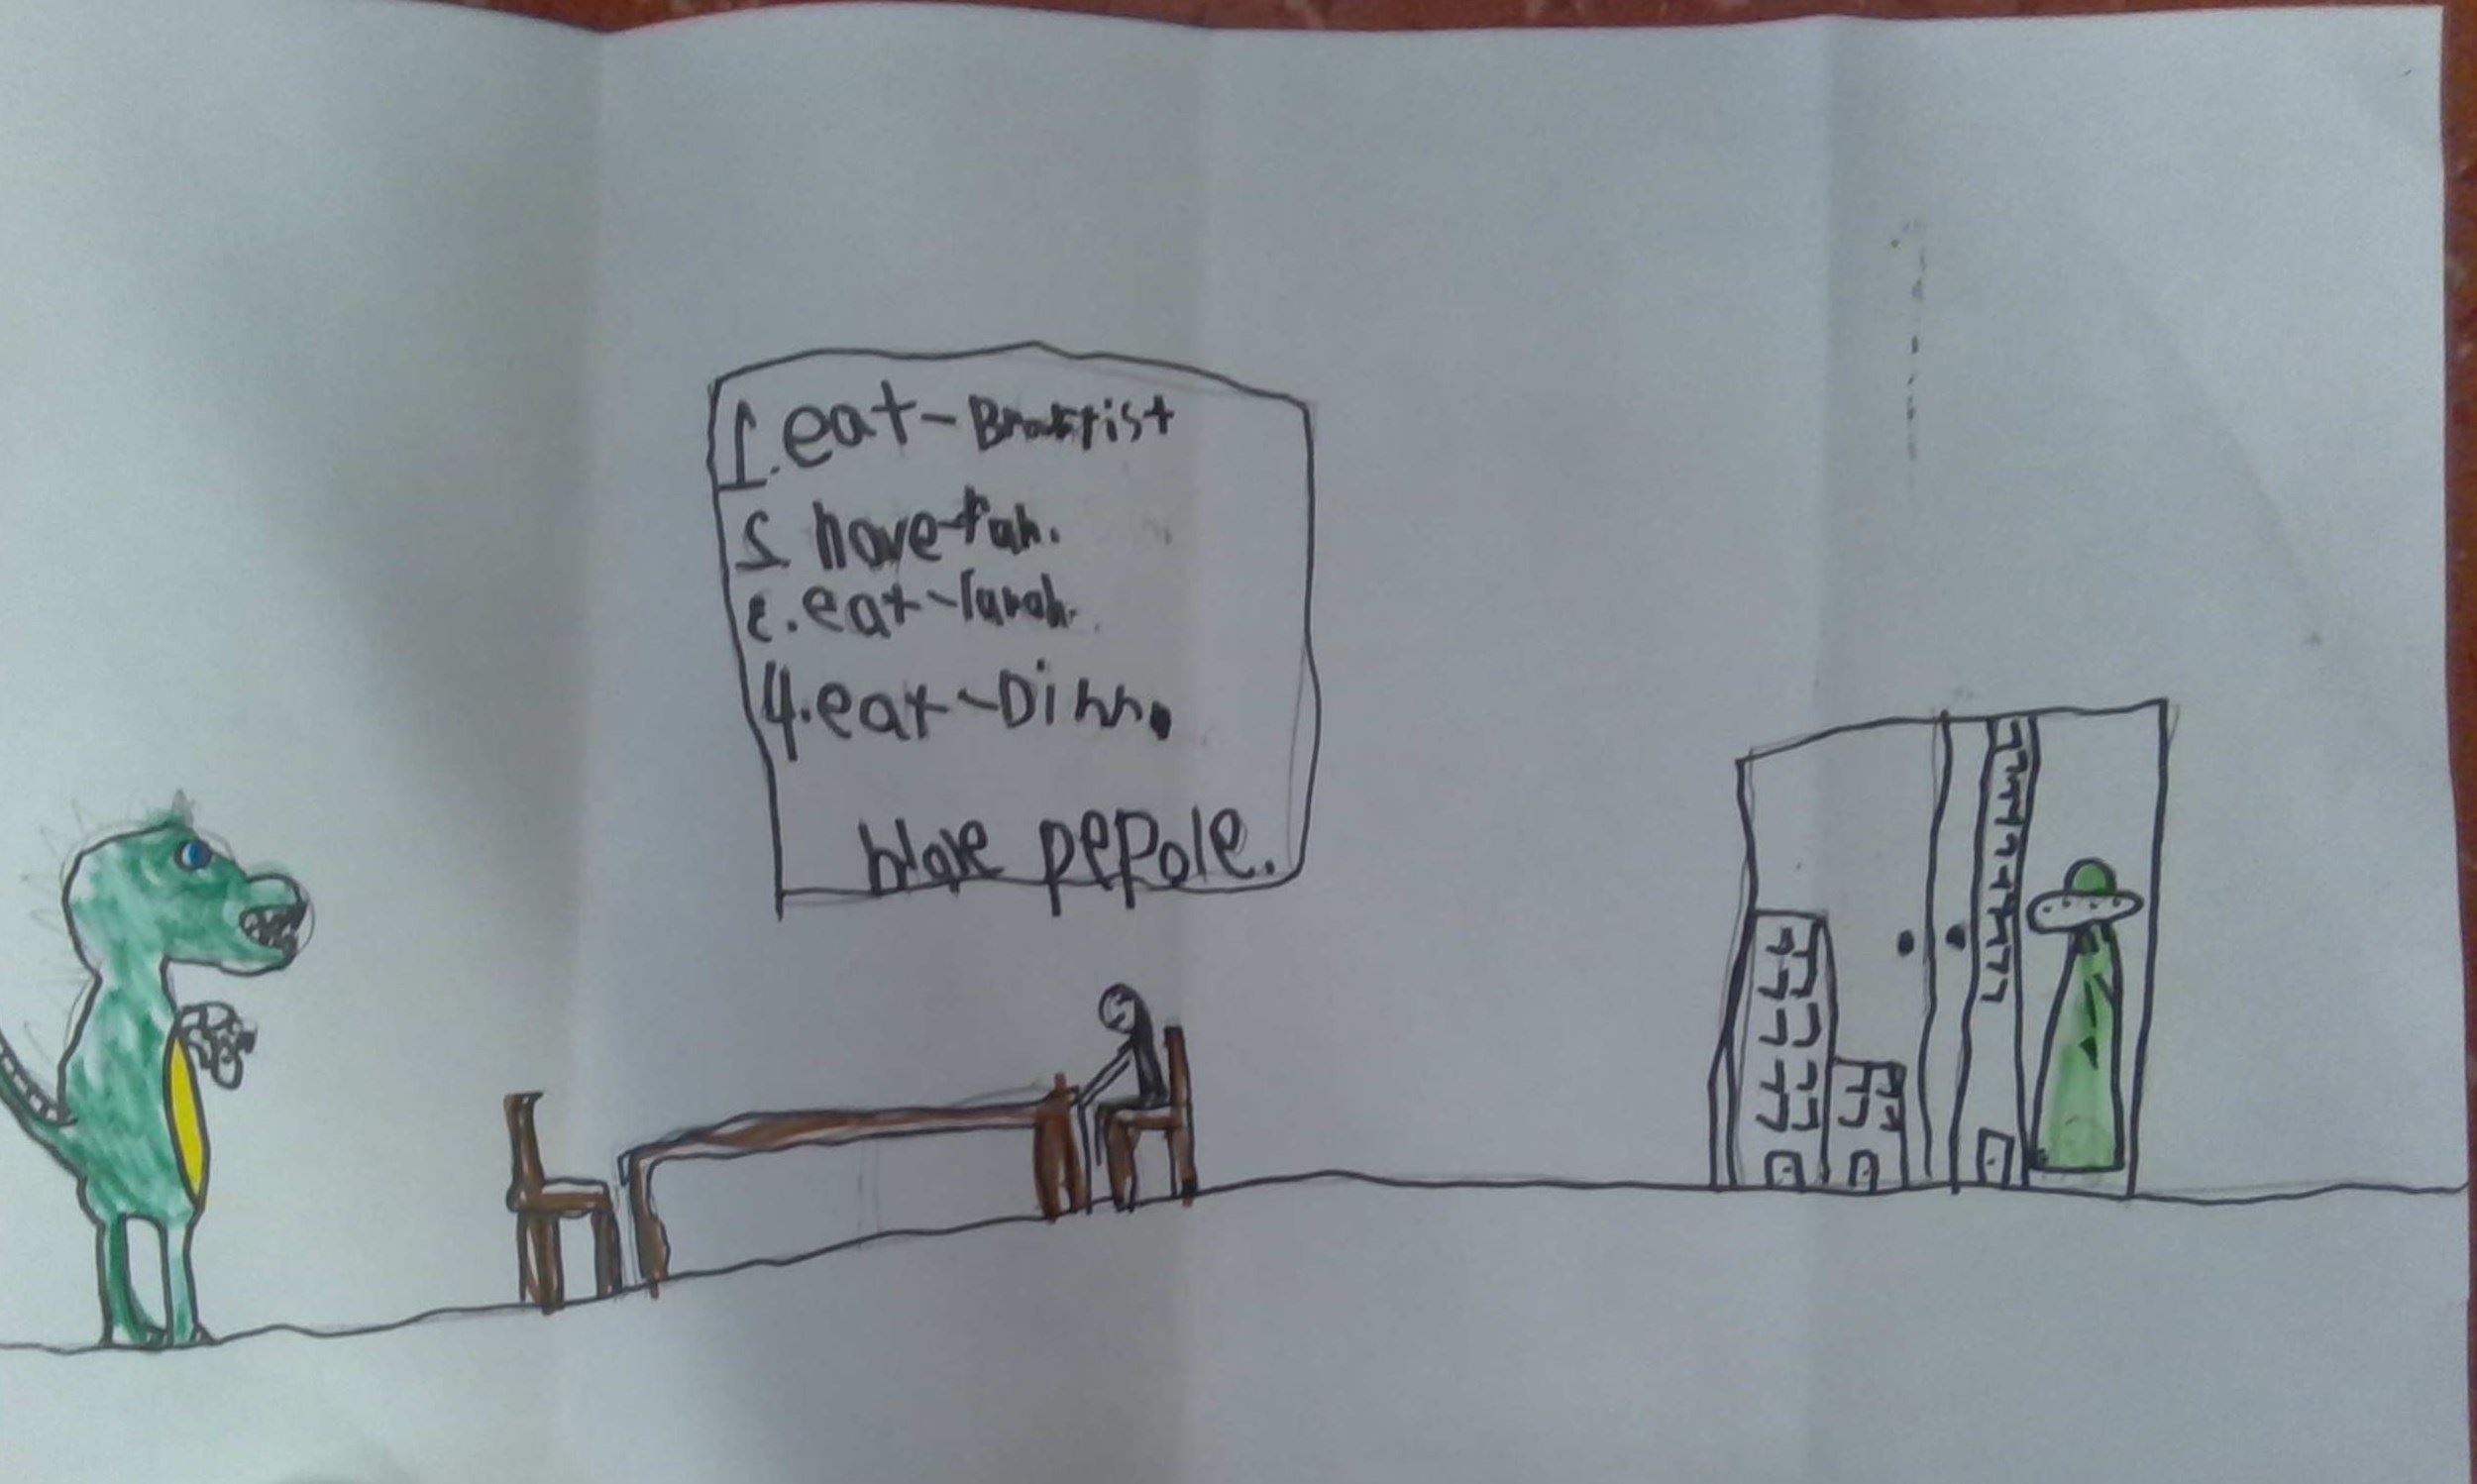 1. eat-Brakfist
2. have-fun.
3. eat-lunch.
4. eat-Dinn.
pepole.